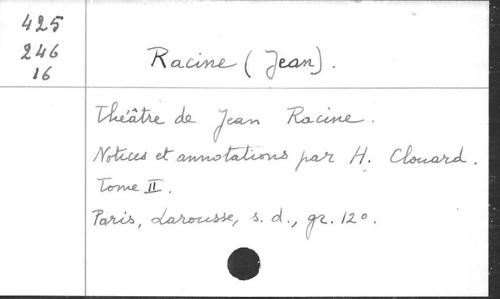 425
246
16
Racine (Jean).
Théâtre de Jean Racine.
Notices et annotations par H. Clouard.
Tome II.
Paris, Larousse, s. d., gr. 12°.